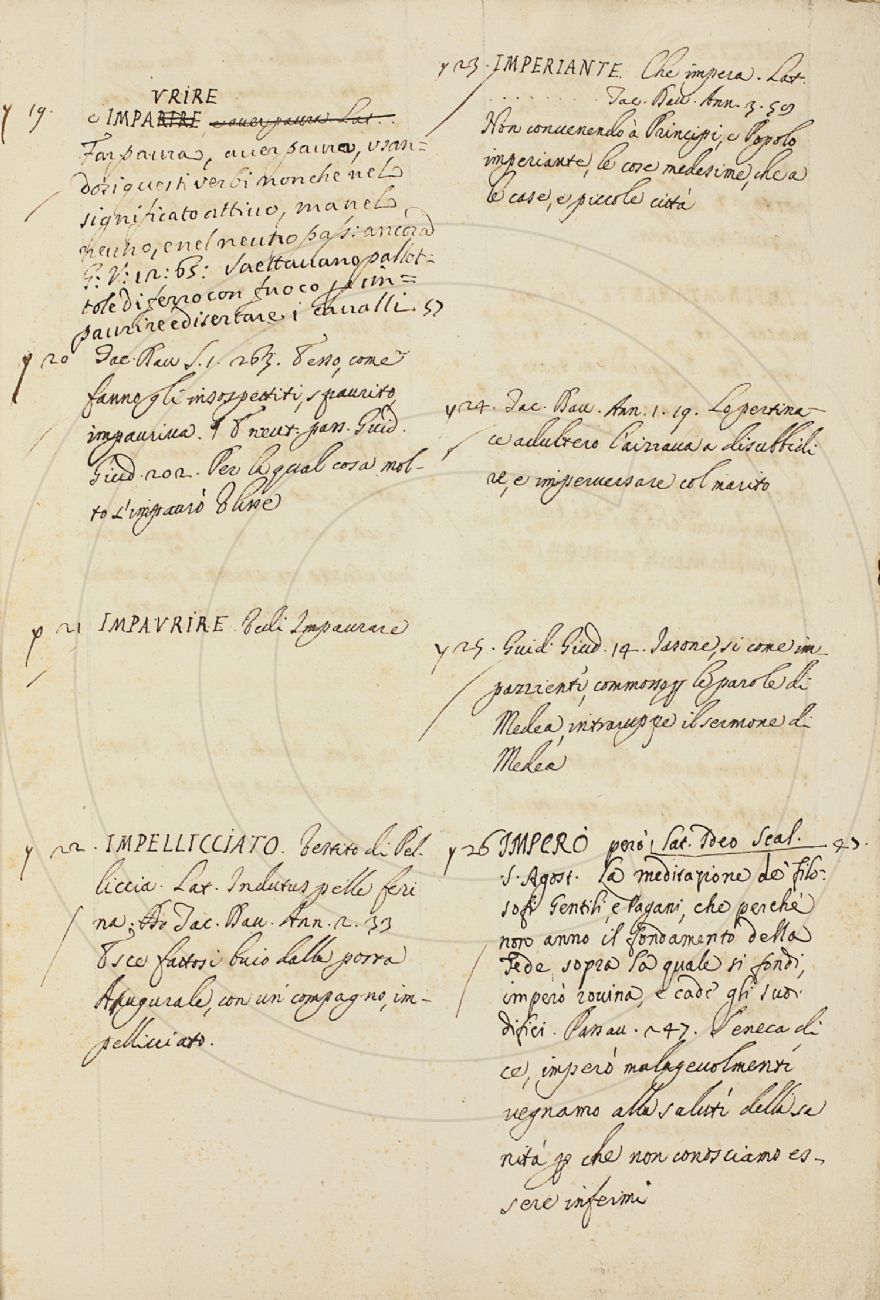 y 19.
VRIRE
e IMPARIRE e auer paura Lat.
Far paura, auer paura, vsan=
dosi questi verbi non che nel
significato attiuo, ma nel
neutro, e nel neutro pass: ancora
G: V: 12: 65: Saettauano pallot=
tole di ferro con fuoco p im=
paurire e disertare i caualli. 57
y 20 Tac. Dau S. 1. 263. Esso, come
fanno gli insospettiti, spaurito,
impauriua. ¶ E neut: pass. Guid.
Giud. 202. Per la qual cosa mol-
to s'impaurò Vlisse
p 21 IMPAVRIRE. Vedi Impaurare
y 22. IMPELLICCIATO. Vestito di Pel-
liccia. Lat. Indutus pelle feri
na. Tac. Dau. Ann. 2. 33
Esce fattosi buio dalla porta
Augurale, con un compagno, im-
pelliciato.
y 23. IMPERIANTE. Che impera. Lat.
. . . . . . . . Tac. Dau. Ann. 3. 59
Non conuenendo à Principi, e Popolo
imperiante, le cose medesime, che a
le case, e piccole città
y 24. Tac. Dau. Ann. 1. 19. Lo pertina-
ce adultero l'aizzaua a disubbidi
re, e imperuersare col marito
y 25. Guid. Giud. 14. Jasone, si come im-
pazzienti, commosso p le parole di
Medea, intraruppe il sermone di
Medea
y 26 IMPERÒ però, Lat. Ideo Scal. 43.
S. Agost. La meditazione de' filo:
sofi Gentili, e Pagani, che perché
non anno il fondamento della
Fede, sopra la quale si fondi,
imperò rouina, e cade gli suoi
difici. Passau. 247. Seneca di
ce, imperò malageuolmenti
vegnamo alla saluti della sa
nità p che non conosciamo es-
sere infermi